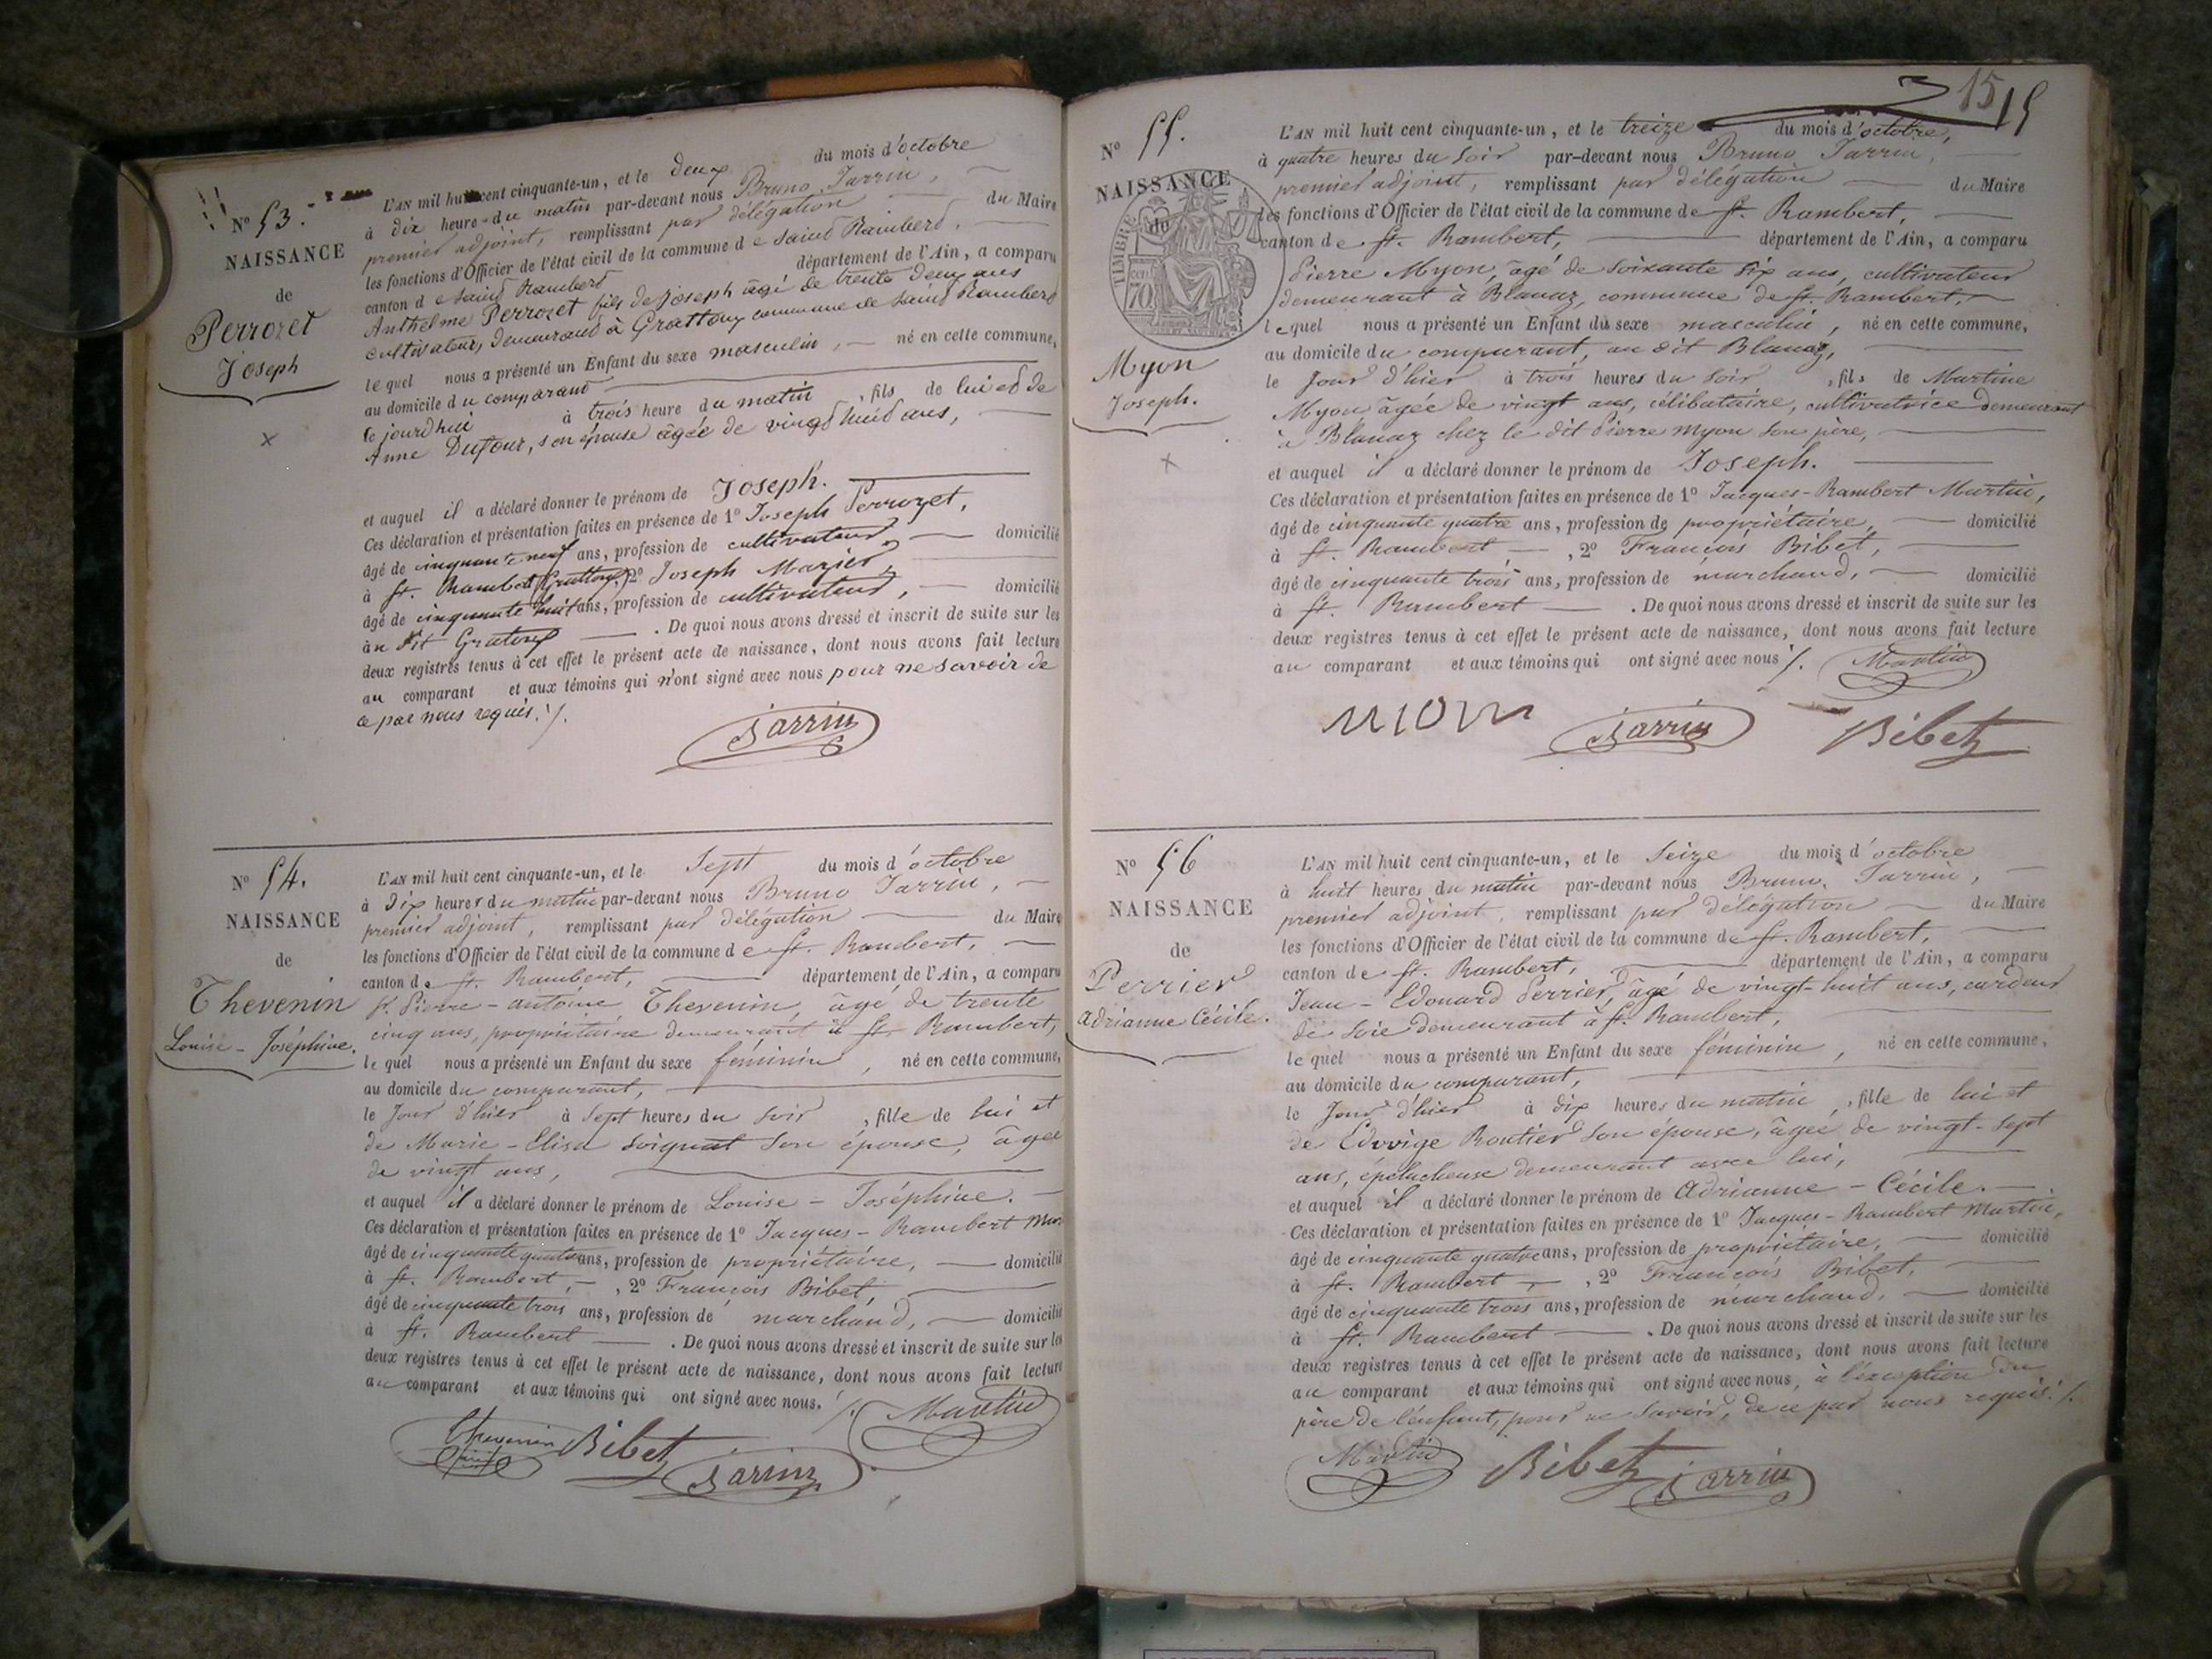 N° 53.
NAISSANCE
de
Perrozet
Joseph
L'AN mil huit cent cinquante-un, et le deux du mois d'octobre
à dix heure du matin par-devant nous Bruno Jarrin,
premier adjoint, remplissant par délégation du Maire
les fonctions d'Officier de l'état civil de la commune de Saint Rambert,
canton de Saint Rambert département de l'Ain, a comparu
Anthelme Perrozet fils de Joseph âgé de trente deux ans
cultivateur, demeurand à Grattoux commune de Saint Rambert
lequel nous a présenté un Enfant du sexe masculin, né en cette commune,
au domicile du comparand
le jourdhui à trois heure du matin, fils de lui et de
Anne Dufour, son épouse âgée de vingt huit ans,
et auquel il a déclaré donner le prénom de Joseph.
Ces déclaration et présentation faites en présence de 1° Joseph Perrozet,
âgé de cinquante neuf ans, profession de cultivateur, domicilié
à St. Rambert (Grattoux) 2° Joseph Mazier,
âgé de cinquante huit ans, profession de cultivateur, domicilié
au dit Gratoux. De quoi nous avons dressé et inscrit de suite sur les
deux registres tenus à cet effet le présent acte de naissance, dont nous avons fait lecture
au comparant et aux témoins qui n'ont signé avec nous pour ne savoir de
ce par nous requis ./.
Jarrin
N° 54.
NAISSANCE
de
Thevenin
Louise-Joséphine.
L'AN mil huit cent cinquante-un, et le Sept du mois d'octobre
à Dix heures du matin par-devant nous Bruno Jarrin,
premier adjoint, remplissant par délégation du Maire
les fonctions d'Officier de l'état civil de la commune de St. Rambert,
canton de St. Rambert, département de l'Ain, a comparu
Sr. Pierre-antoine Thevenin, âgé de trente
cinq ans, propriétaire demeurant à St. Rambert,
lequel nous a présenté un Enfant du sexe féminin, né en cette commune,
au domicile du comparant,
le Jour d'hier à Sept heures du soir, fille de lui et
de Marie-Elisa Soignat son épouse, âgée
de vingt ans,
et auquel il a déclaré donner le prénom de Louise-Joséphine.
Ces déclaration et présentation faites en présence de 1° Jacques-Rambert Mar.
âgé de cinquante quatre ans, profession de propriétaire, domicilié
à St. Rambert, 2° François Bibet,
âgé de cinquante trois ans, profession de marchand, domicilié
à St. Rambert. De quoi nous avons dressé et inscrit de suite sur les
deux registres tenus à cet effet le présent acte de naissance, dont nous avons fait lecture
au comparant et aux témoins qui ont signé avec nous. /.
Martin
Thevenin Bibet Jarrin
15 15
N° 55.
NAISSANCE
TIMBRE
70
Myon
Joseph.
L'AN mil huit cent cinquante-un, et le treize du mois d'octobre,
à quatre heures du Soir par-devant nous Bruno Jarrin,
premier adjoint, remplissant par délégation du Maire
les fonctions d'Officier de l'état civil de la commune de St. Rambert,
canton de St. Rambert, département de l'Ain, a comparu
Pierre Myon, âgé de soixante six ans, cultivateur
demeurant à Blanaz, commune de St. Rambert,
lequel nous a présenté un Enfant du sexe masculin, né en cette commune,
au domicile du comparant, au dit Blanaz,
le Jour d'hier à trois heures du Soir, fils de Martine
Myon âgée de vingt ans, célibataire, cultivatrice demeurant
à Blanaz chez le dit Pierre Myon son père,
et auquel il a déclaré donner le prénom de Joseph.
Ces déclaration et présentation faites en présence de 1° Jacques-Rambert Martin,
âgé de cinquante quatre ans, profession de propriétaire, domicilié
à St. Rambert, 2° François Bibet,
âgé de cinquante trois ans, profession de marchand, domicilié
à St. Rambert. De quoi nous avons dressé et inscrit de suite sur les
deux registres tenus à cet effet le présent acte de naissance, dont nous avons fait lecture
au comparant et aux témoins qui ont signé avec nous /. Martin
Mion Jarrin Bibet
N° 56
NAISSANCE
de
Perrier
Adrianne Cécile.
L'AN mil huit cent cinquante-un, et le Seize du mois d'octobre
à huit heures du matin par-devant nous Bruno Jarrin,
premier adjoint, remplissant par délégation du Maire
les fonctions d'Officier de l'état civil de la commune de St. Rambert,
canton de St. Rambert, département de l'Ain, a comparu
Jean-Edouard Perrier, âgé de vingt-huit ans, cardeur
de soie demeurant à St. Rambert,
lequel nous a présenté un Enfant du sexe féminin, né en cette commune,
au domicile du comparant,
le Jour d'hier à dix heures du matin, fille de lui et
de Edvvige Routier son épouse, âgée de vingt-sept
ans, éplucheuse demeurant avec lui,
et auquel il a déclaré donner le prénom de Adrianne-Cécile.
Ces déclaration et présentation faites en présence de 1° Jacques-Rambert Martin,
âgé de cinquante quatre ans, profession de propriétaire, domicilié
à St. Rambert, 2° François Bibet,
âgé de cinquante trois ans, profession de marchand, domicilié
à St. Rambert. De quoi nous avons dressé et inscrit de suite sur les
deux registres tenus à cet effet le présent acte de naissance, dont nous avons fait lecture
au comparant et aux témoins qui ont signé avec nous, à l'exception du
père de l'enfant, pour ne savoir, de ce par nous requis. /.
Martin Bibet Jarrin